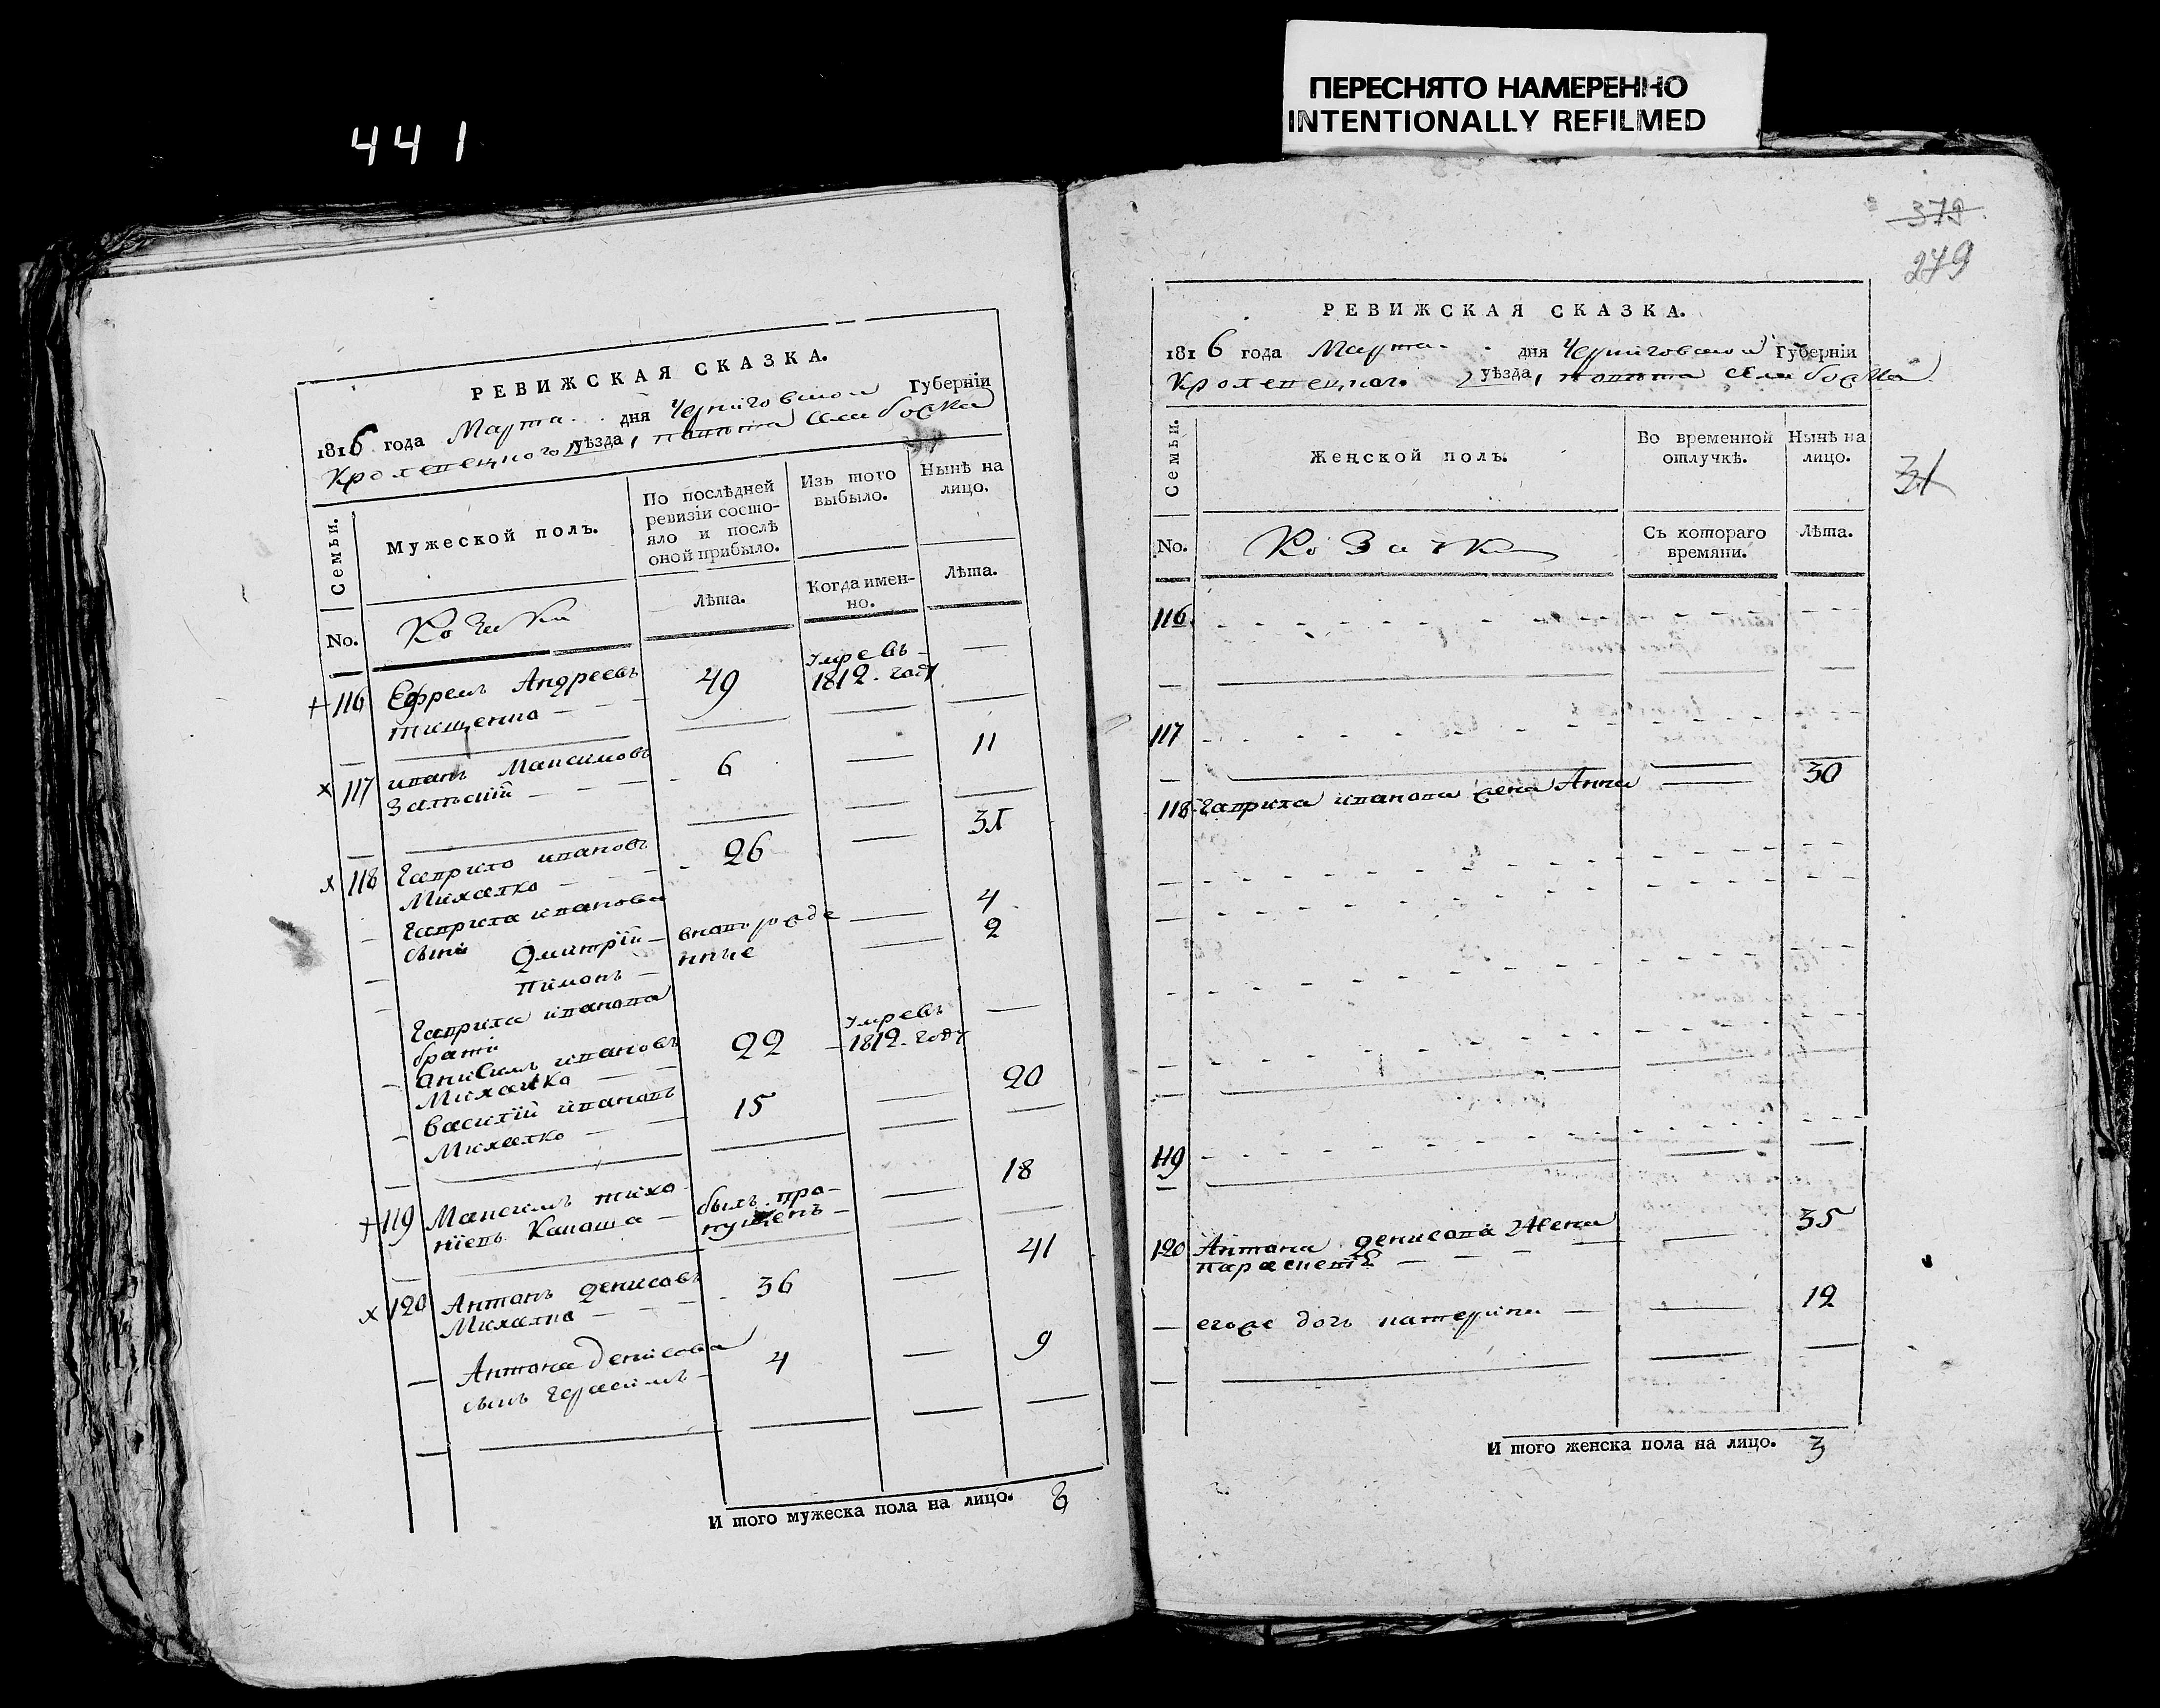 441
ПЕРЕСНЯТО НАМЕРЕННО
INTENTIONALLY REFILMED
РЕВИЖСКАЯ СКАЗКА.
1816 года Марта дня Черниговской Губерніи
Кролевецкого уѣзда,
Семьи.
Мужеской полъ.
По послѣдней ревизіи состо-
яло и послѣ
оной прибыло.
Изъ того
выбыло.
Нынѣ на
лицо.
No.
Козаки
Лѣта.
Когда имен-
но.
Лѣта.
+ 116 Ефремъ Андреевъ 49 умре въ —
тищенко 1812. году
x 117 иванъ Максимовъ 6 — 11
x 118 Гаврило ивановъ 26 — 31
Михалко
Гаврила иванова
сынъ Дмитрій вновь рожде — 4
Пимонъ нные — 2
Гаврила иванова
братя
анисимъ ивановъ 22 умре въ —
Михалко 1812. году
василій ивановъ 15 — 20
Михалко
+ 119 Максимъ тихо былъ про- — 18
ніевъ пущенъ
x 120 Антонъ Денисовъ 36 — 41
Михалко
Антона Денисова 4 — 9
сынъ Герасимъ
И того мужеска пола на лицо. 8
372
279
РЕВИЖСКАЯ СКАЗКА.
1816 года Марта дня Черниговской Губерніи
Кролевецкого уѣзда,
31
Семьи.
Женской полъ.
Во временной
отлучкѣ.
Нынѣ на
лицо.
No.
Козачки
Съ котораго
времяни.
Лѣта.
116
117
118 Гаврила иванова жена Анна — 30
119
120 Антона Денисова Жена — 35
параскева
егоже дочь катерина — 12
И того женска пола на лицо. 3